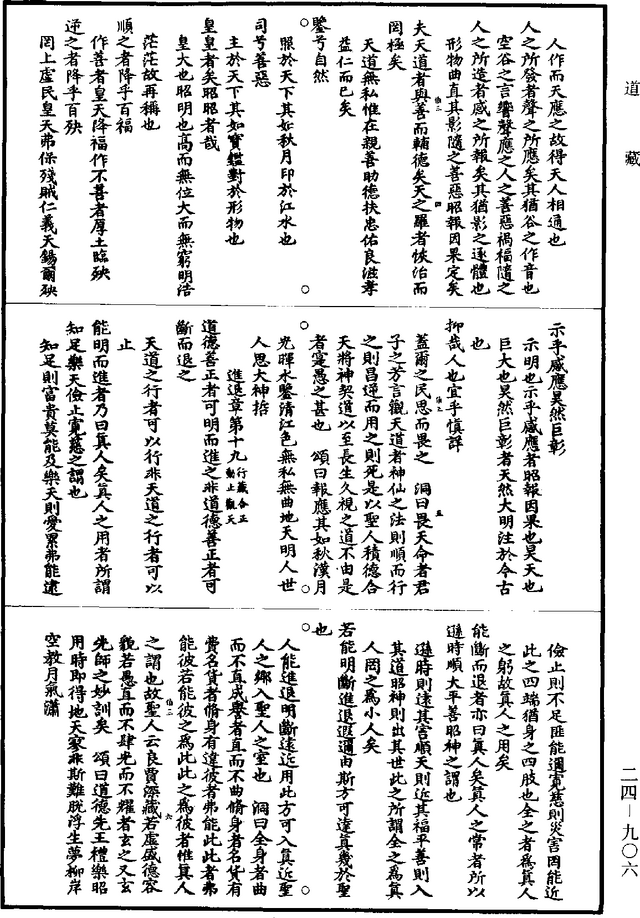 道藏
人作而天應之故得天人相通也
人之所發者聲之所應矣其猶谷之作音也
空谷之言響聲應之人之善惡禍福隨之
人之所造者感之所報矣其猶影之逐體也
形物曲直其影隨之善惡昭報因果定矣
夫天道者與善而輔德矣天之羅者恢洽而
罔極矣
天道無私惟在親善助德扶忠佑良滋孝
益仁而已矣
鑒兮自然
照於天下其如秋月印於江水也
司兮善惡
主於天下其如寶鑑對於形物也
皇皇者矣昭昭者哉
皇大也昭明也高而無位大而無窮明浩
茫茫故再稱也
順之者降乎百福
作善者皇天降福作不善者厚土臨殃
逆之者降乎百殃
罔上虐民皇天弗保殘賊仁義天錫爾殃
示乎感應昊然巨彰
示明也示乎感應者昭報因果也昊天也
巨大也昊然巨彰者天然大明注於今古
也
抑哉人也宜乎慎詳
蓋爾之民思而畏之 洞曰畏天命者君
子之芳言觀天道者神仙之法則順而行
之則昌逆而用之則死是以聖人積德合
天將神契道以至長生久視之道不由是
者寔愚之甚也 頌曰報應其如秋漢月
光暉水鑒清江色無私無曲地天明人世
人思大神哲
進退章第十九 行藏合正動止觀天
道德善正者可明而進之非道德善正者可
斷而退之
天道之行者可以行非天道之行者可以
止
能明而進者乃曰真人矣真人之用者所謂
知足樂天儉止寬慈之謂也
知足則富貴莫能及樂天則愛累弗能逮
儉止則不足匪能邇寬慈則災害罔能近
此之四端猶身之四肢也全之者為真人
之躬故真人之用矣
能斷而退者亦曰真人矣真人之常者所以
遜時順大平善昭神之謂也
遜時則遠其害順天則近其福平善則入
其道昭神則出其世此之所謂全之為真
人罔之為小人矣
若能明斷進退遐邇由斯方可達真幾於聖
也
人能進退明斷遠近用此方可入真近聖
人之鄉入聖人之室也 洞曰全身者曲
而不直成譽者直而不曲脩身者名貨有
費名貨者脩身有違彼者弗能此此者弗
能彼若能彼之為此此之為彼者惟真人
之謂也故聖人云良賈深藏若虛盛德容
貌若愚直而不肆光而不耀者玄之又玄
先師之妙訓矣 頌曰道德先王禮樂昭
用時即得地天寥非斯難脫浮生夢柳岸
空教月氣瀟
二四—九〇六